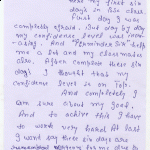 my first six
days in this class.
First day I was
completly afraid. But day by day
my confidence level was
ating. And "Reminder Six" help
me a lot and my classmates
also. After complete these six
days I thought that my
confidence level is on Top.
And completely I
am sure about my goal.
And to achive this I have
to work very hard. At last
I wont say these six days are
for me due to